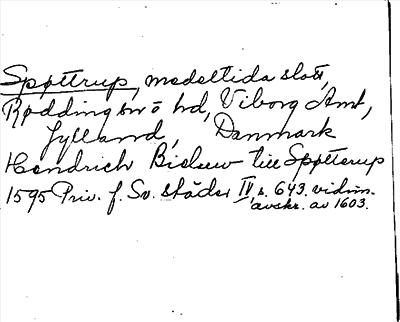 Spøttrup, medeltida slott,
Rødding sn o hd, Viborg Amt,
Jylland, Danmark
Hendrich Bielsew till Spøtterup
1595 Priv. f. Sv. städer IV s. 643. vidim.
avskr. av 1603.